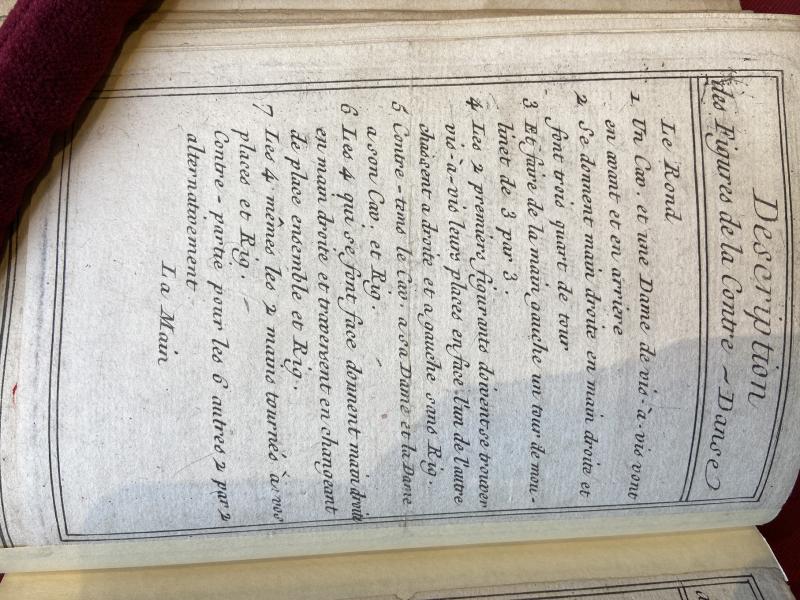 Description
des Figures de la Contre ~ Danse
Le Rond
1 Un Cav. et une Dame de vis-à-vis vont
en avant et en arriere
2 Se donnent main droite en main droite et
font trois quart de tour
3 Et faire de la main gauche un tour de mou-
linet de 3 par 3.
4 Les 2 premiers figurants doivent se trouver
vis-à-vis leurs places en face l'un de l'autre
chassent a droite et a gauche sans Rig.
5 Contre-tems le Cav. a sa Dame et la Dame
a son Cav. et Rig.
6 Les 4 qui se font face donnent main droite
en main droite et traversent en changeant
de place ensemble et Rig.
7 Les 4 mêmes les 2 mains tournés à vis
places et Rig.
Contre-partie pour les 6 autres 2 par 2
alternativement
La Main